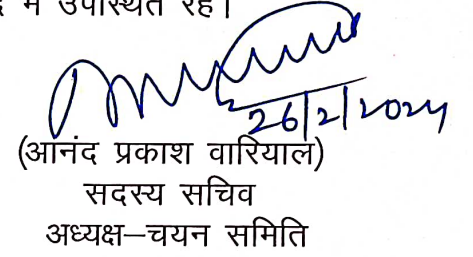 में उपस्थित रहे।
26/2/2024
(आनंद प्रकाश वारियाल)
सदस्य सचिव
अध्यक्ष–चयन समिति